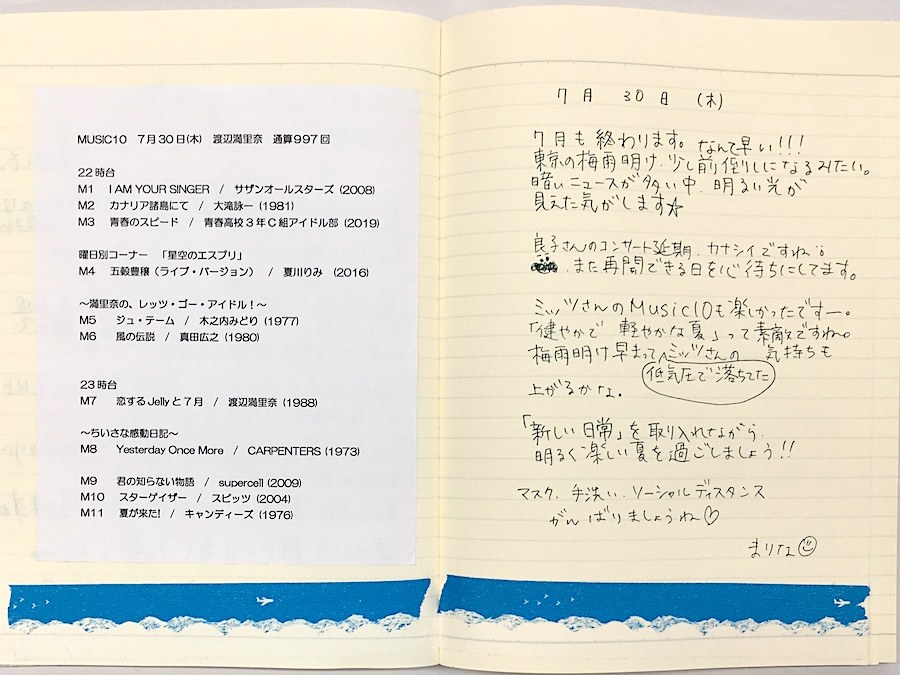 MUSIC10 7月30日(木) 渡辺満里奈 通算997回
22時台
M1 I AM YOUR SINGER / サザンオールスターズ (2008)
M2 カナリア諸島にて / 大滝詠一 (1981)
M3 青春のスピード / 青春高校3年C組アイドル部 (2019)
曜日別コーナー 「星空のエスプリ」
M4 五穀豊穣(ライブ・バージョン) / 夏川りみ (2016)
～満里奈の、レッツ・ゴー・アイドル!～
M5 ジュ・テーム / 木之内みどり (1977)
M6 風の伝説 / 真田広之 (1980)
23時台
M7 恋するJellyと7月 / 渡辺満里奈 (1988)
～ちいさな感動日記～
M8 Yesterday Once More / CARPENTERS (1973)
M9 君の知らない物語 / supercell (2009)
M10 スターゲイザー / スピッツ (2004)
M11 夏が来た! / キャンディーズ (1976)
7月 30日 (木)
7月も終わります。なんて早い!!!
東京の梅雨明け、少し前倒しになるみたい。
暗いニュースが多い中、明るい光が
見えた気がします☆
良子さんのコンサート延期、カナシイですね
また再開できる日を心待ちにしてます。
ミッツさんのMusic10も楽しかったですー。
「健やかで 軽やかな夏」って素敵ですね。
梅雨明け早まってミッツさんの 気持ちも
低気圧で落ちてた
上がるかな。
「新しい日常」を取り入れながら、
明るく楽しい夏を過ごしましょう!!
マスク、手洗い、ソーシャルディスタンス
がんばりましょうね♡
まりな☺